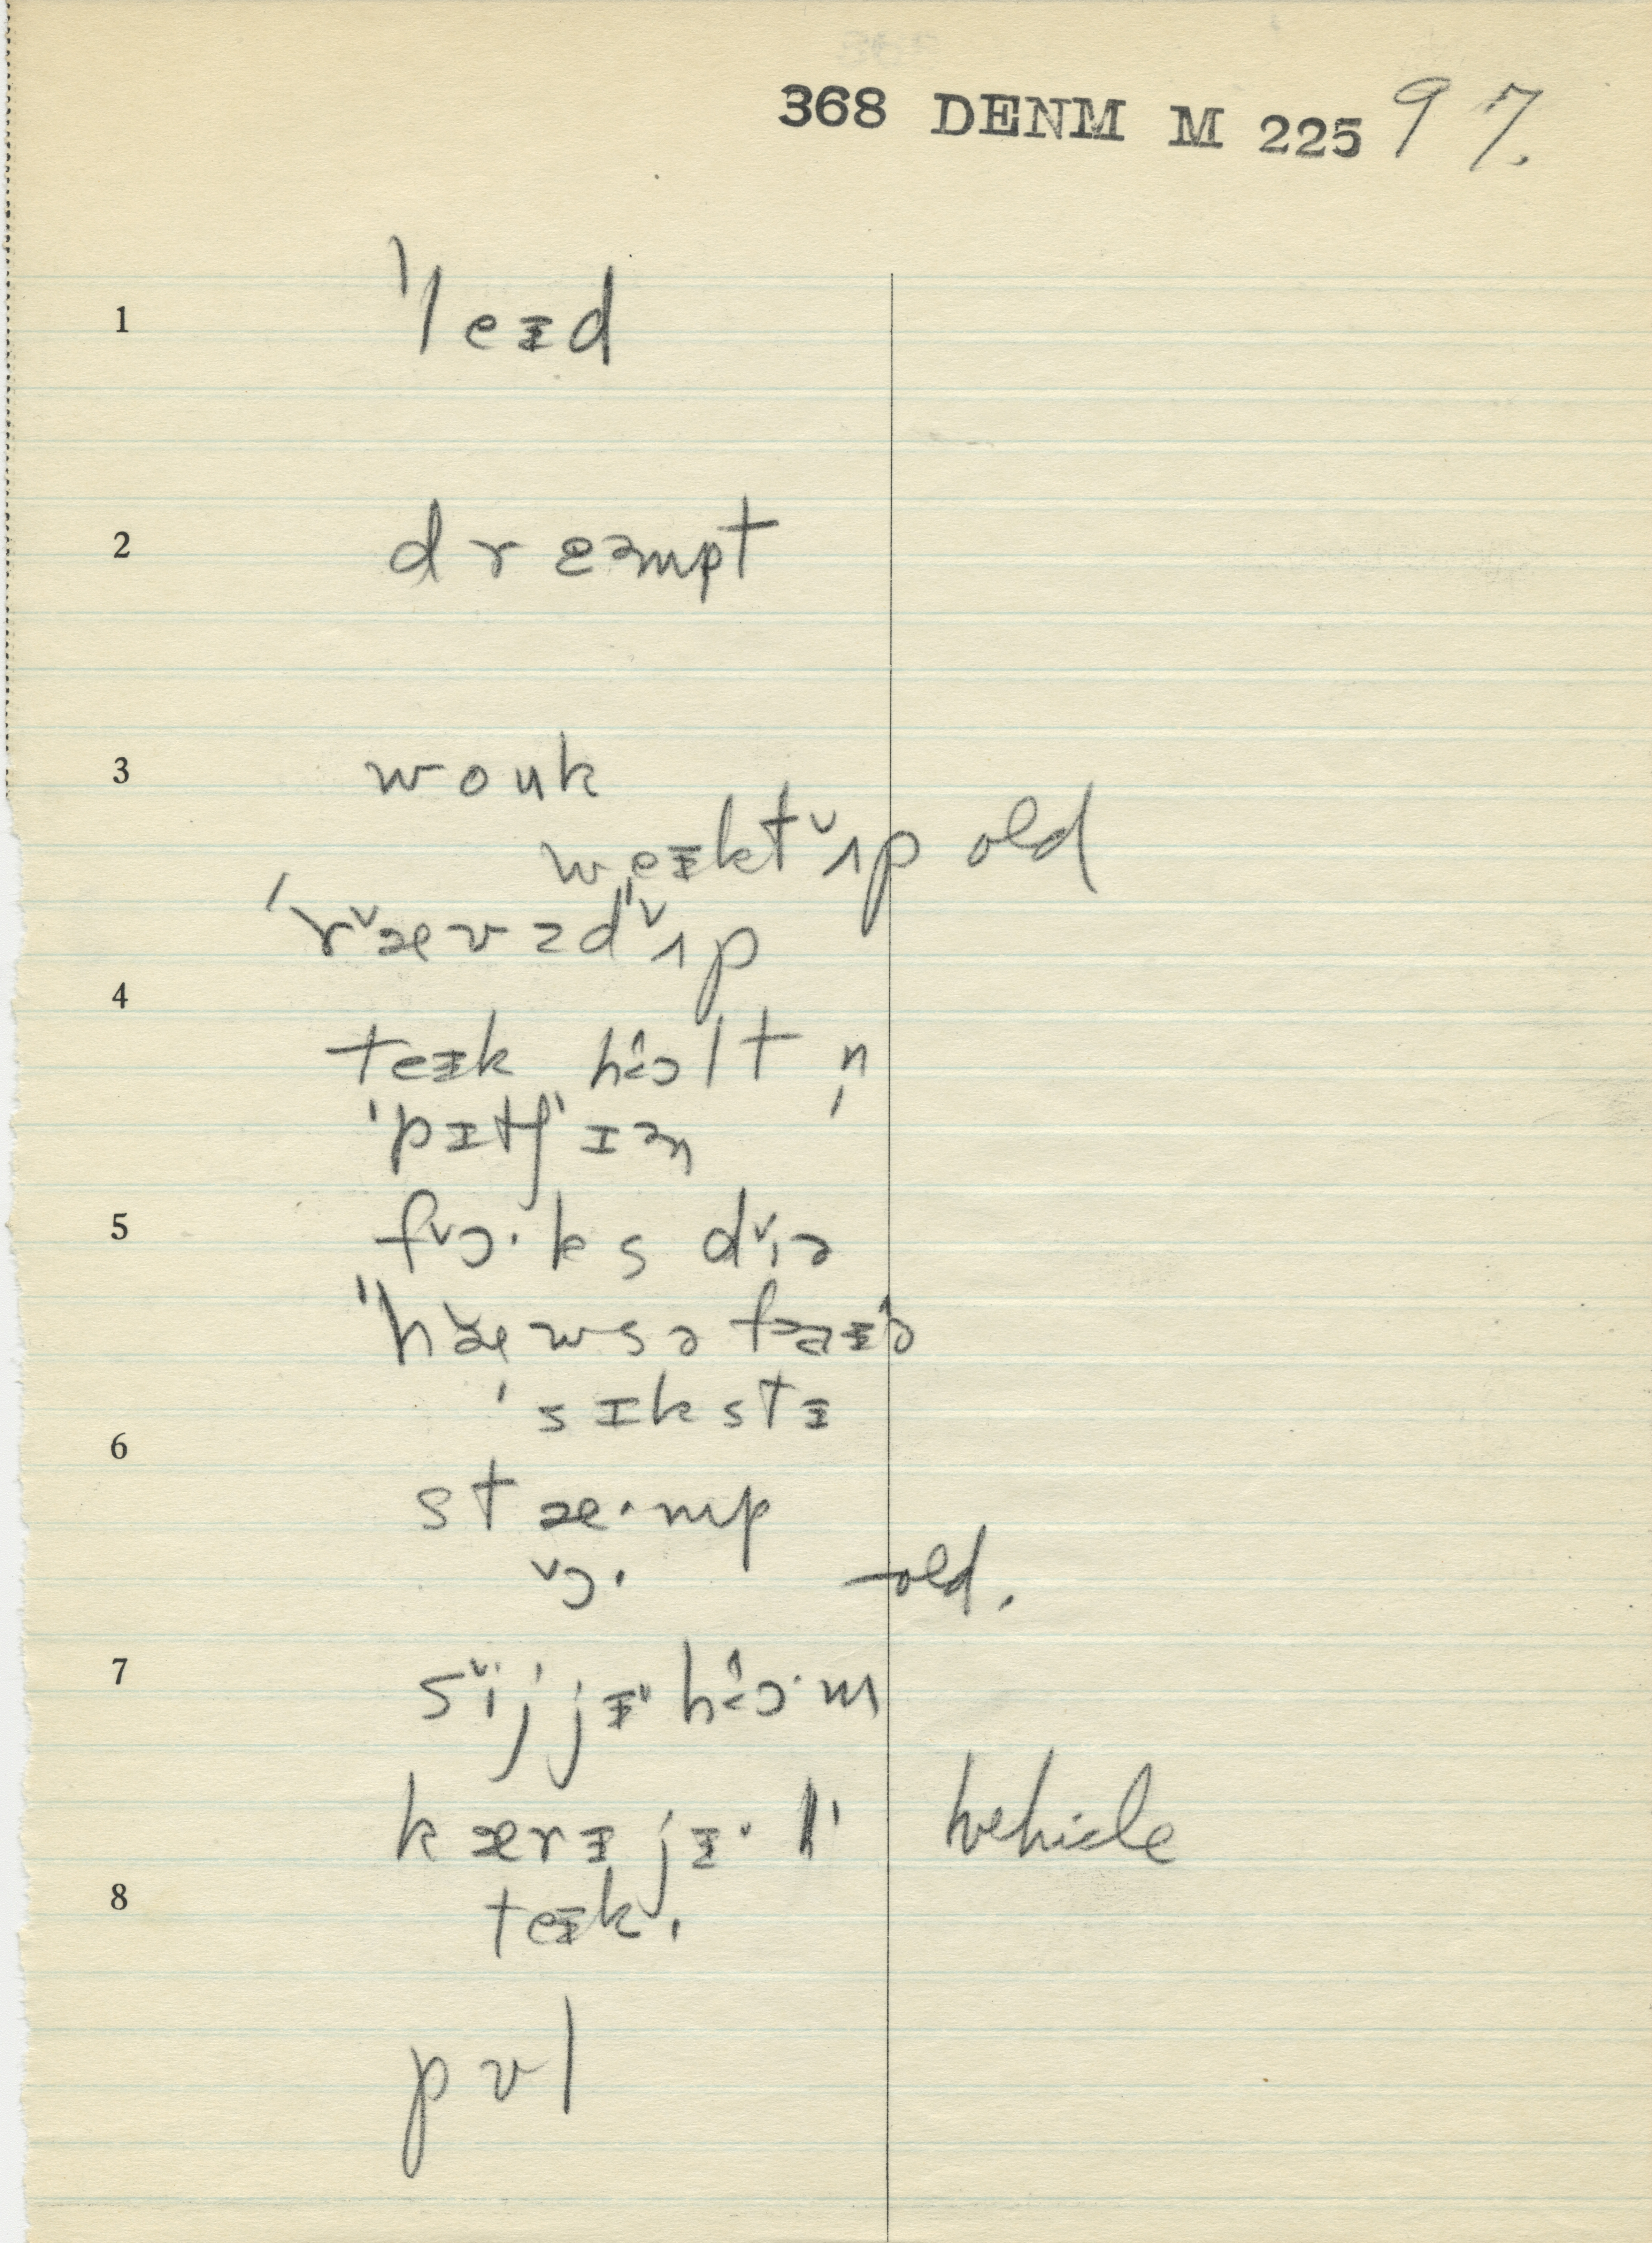 368 DENM M 225 97.
1 ˈleɪd
2 drɛəmpt
3 wouk
weɪkt˅ʌp old
ˈr˅ævəd"˅ʌp
4
teɪk hɔlt n̩
ˈpɪtʃ"ɪən
5 f˅ɔ·ks d˅ɪə
"hæ˅wsə faɪə
ˈsɪkstɪ
6
stæ·mp
˅ɔ· — old.
7 s˅ijjɪ hɔ·m
kærɪ jɪ· vehicle
8 teɪk.
pʊl